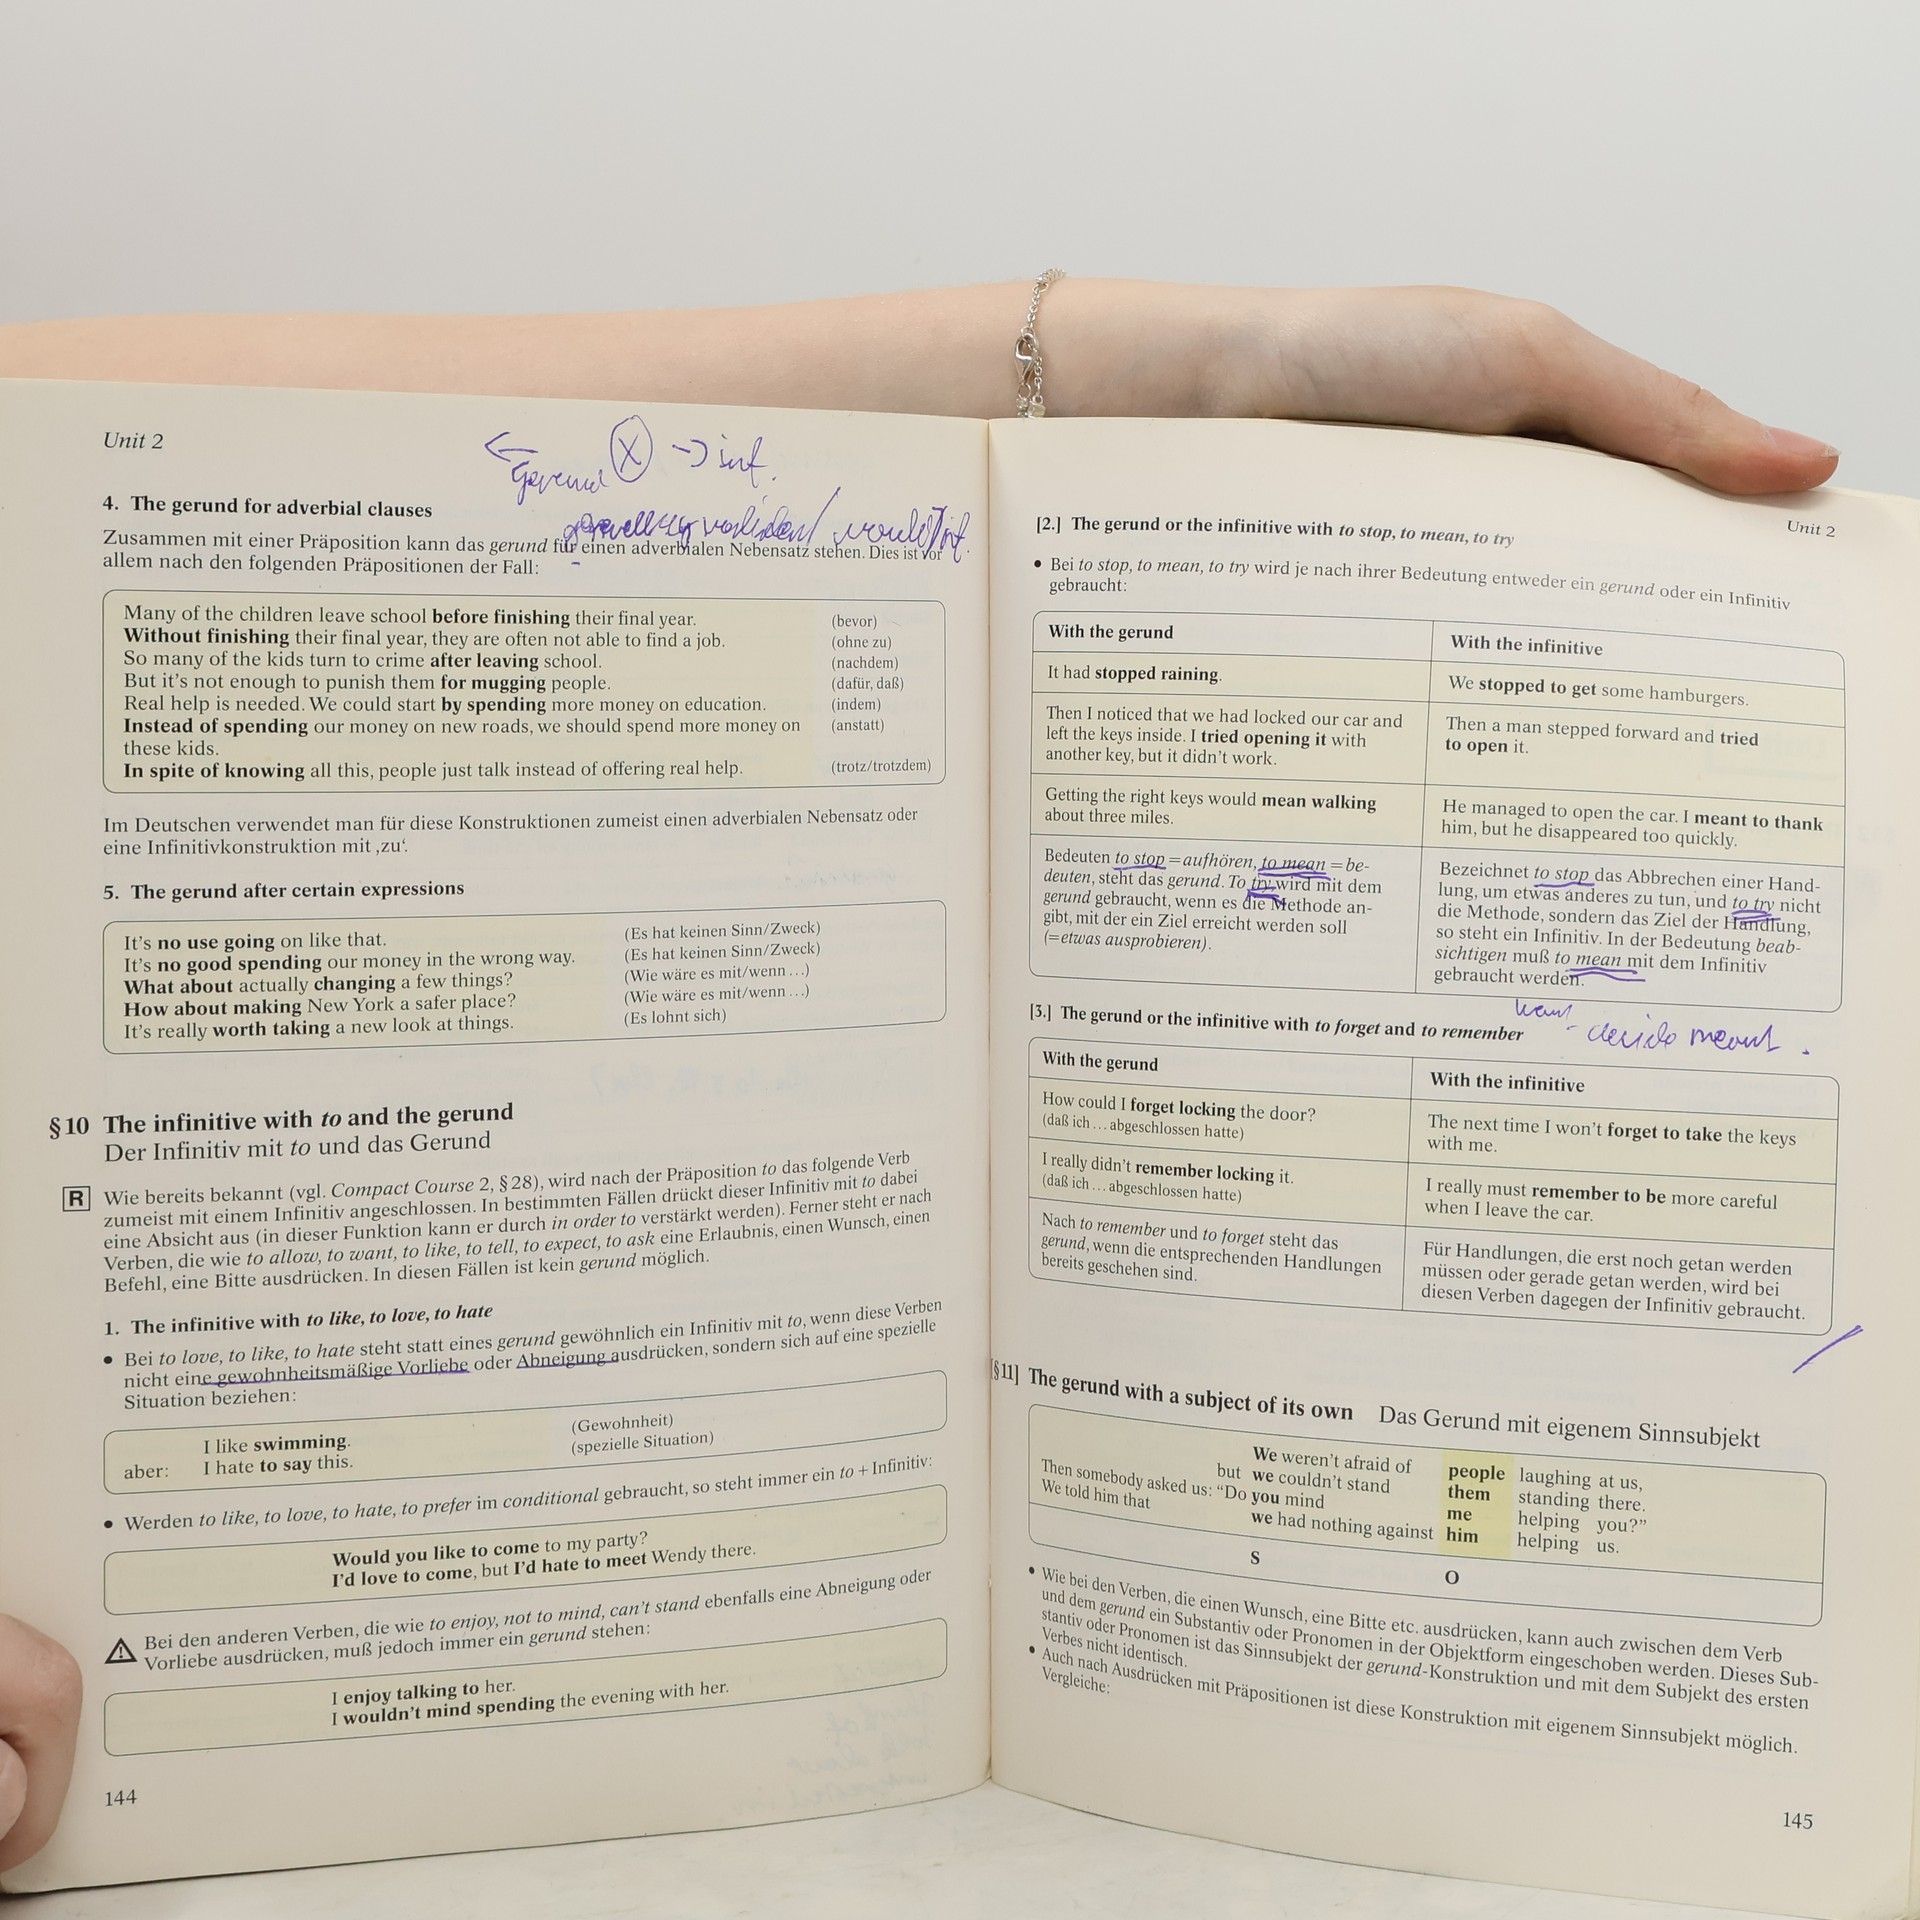 Unit 2
← gerund X → inf.
4. The gerund for adverbial clauses
Zusammen mit einer Präposition kann das gerund für einen adverbialen Nebensatz stehen. Dies ist vor
allem nach den folgenden Präpositionen der Fall:
Many of the children leave school before finishing their final year. (bevor)
Without finishing their final year, they are often not able to find a job. (ohne zu)
So many of the kids turn to crime after leaving school. (nachdem)
But it's not enough to punish them for mugging people. (dafür, daß)
Real help is needed. We could start by spending more money on education. (indem)
Instead of spending our money on new roads, we should spend more money on (anstatt)
these kids.
In spite of knowing all this, people just talk instead of offering real help. (trotz/trotzdem)
Im Deutschen verwendet man für diese Konstruktionen zumeist einen adverbialen Nebensatz oder
eine Infinitivkonstruktion mit ‚zu‘.
5. The gerund after certain expressions
It's no use going on like that. (Es hat keinen Sinn/Zweck)
It's no good spending our money in the wrong way. (Es hat keinen Sinn/Zweck)
What about actually changing a few things? (Wie wäre es mit/wenn ...)
How about making New York a safer place? (Wie wäre es mit/wenn ...)
It's really worth taking a new look at things. (Es lohnt sich)
§10 The infinitive with to and the gerund
Der Infinitiv mit to und das Gerund
R Wie bereits bekannt (vgl. Compact Course 2, §28), wird nach der Präposition to das folgende Verb
zumeist mit einem Infinitiv angeschlossen. In bestimmten Fällen drückt dieser Infinitiv mit to dabei
eine Absicht aus (in dieser Funktion kann er durch in order to verstärkt werden). Ferner steht er nach
Verben, die wie to allow, to want, to like, to tell, to expect, to ask eine Erlaubnis, einen Wunsch, einen
Befehl, eine Bitte ausdrücken. In diesen Fällen ist kein gerund möglich.
1. The infinitive with to like, to love, to hate
• Bei to love, to like, to hate steht statt eines gerund gewöhnlich ein Infinitiv mit to, wenn diese Verben
nicht eine gewohnheitsmäßige Vorliebe oder Abneigung ausdrücken, sondern sich auf eine spezielle
Situation beziehen:
I like swimming. (Gewohnheit)
aber: I hate to say this. (spezielle Situation)
• Werden to like, to love, to hate, to prefer im conditional gebraucht, so steht immer ein to + Infinitiv:
Would you like to come to my party?
I'd love to come, but I'd hate to meet Wendy there.
Bei den anderen Verben, die wie to enjoy, not to mind, can't stand ebenfalls eine Abneigung oder
Vorliebe ausdrücken, muß jedoch immer ein gerund stehen:
I enjoy talking to her.
I wouldn't mind spending the evening with her.
144
Unit 2
[2.] The gerund or the infinitive with to stop, to mean, to try
• Bei to stop, to mean, to try wird je nach ihrer Bedeutung entweder ein gerund oder ein Infinitiv
gebraucht:
With the gerund
With the infinitive
It had stopped raining.
We stopped to get some hamburgers.
Then I noticed that we had locked our car and
left the keys inside. I tried opening it with
another key, but it didn't work.
Then a man stepped forward and tried
to open it.
Getting the right keys would mean walking
about three miles.
He managed to open the car. I meant to thank
him, but he disappeared too quickly.
Bedeuten to stop = aufhören, to mean = be-
deuten, steht das gerund. To try wird mit dem
gerund gebraucht, wenn es die Methode an-
gibt, mit der ein Ziel erreicht werden soll
(= etwas ausprobieren).
Bezeichnet to stop das Abbrechen einer Hand-
lung, um etwas anderes zu tun, und to try nicht
die Methode, sondern das Ziel der Handlung,
so steht ein Infinitiv. In der Bedeutung beab-
sichtigen muß to mean mit dem Infinitiv
gebraucht werden.
[3.] The gerund or the infinitive with to forget and to remember
With the gerund
With the infinitive
How could I forget locking the door?
(daß ich ... abgeschlossen hatte)
The next time I won't forget to take the keys
with me.
I really didn't remember locking it.
(daß ich ... abgeschlossen hatte)
I really must remember to be more careful
when I leave the car.
Nach to remember und to forget steht das
gerund, wenn die entsprechenden Handlungen
bereits geschehen sind.
Für Handlungen, die erst noch getan werden
müssen oder gerade getan werden, wird bei
diesen Verben dagegen der Infinitiv gebraucht.
[§11] The gerund with a subject of its own Das Gerund mit eigenem Sinnsubjekt
We weren't afraid of people laughing at us,
but we couldn't stand them standing there.
Then somebody asked us: "Do you mind me helping you?"
We told him that we had nothing against him helping us.
S O
• Wie bei den Verben, die einen Wunsch, eine Bitte etc. ausdrücken, kann auch zwischen dem Verb
und dem gerund ein Substantiv oder Pronomen in der Objektform eingeschoben werden. Dieses Sub-
stantiv oder Pronomen ist das Sinnsubjekt der gerund-Konstruktion und mit dem Subjekt des ersten
Verbes nicht identisch.
• Auch nach Ausdrücken mit Präpositionen ist diese Konstruktion mit eigenem Sinnsubjekt möglich.
Vergleiche:
145